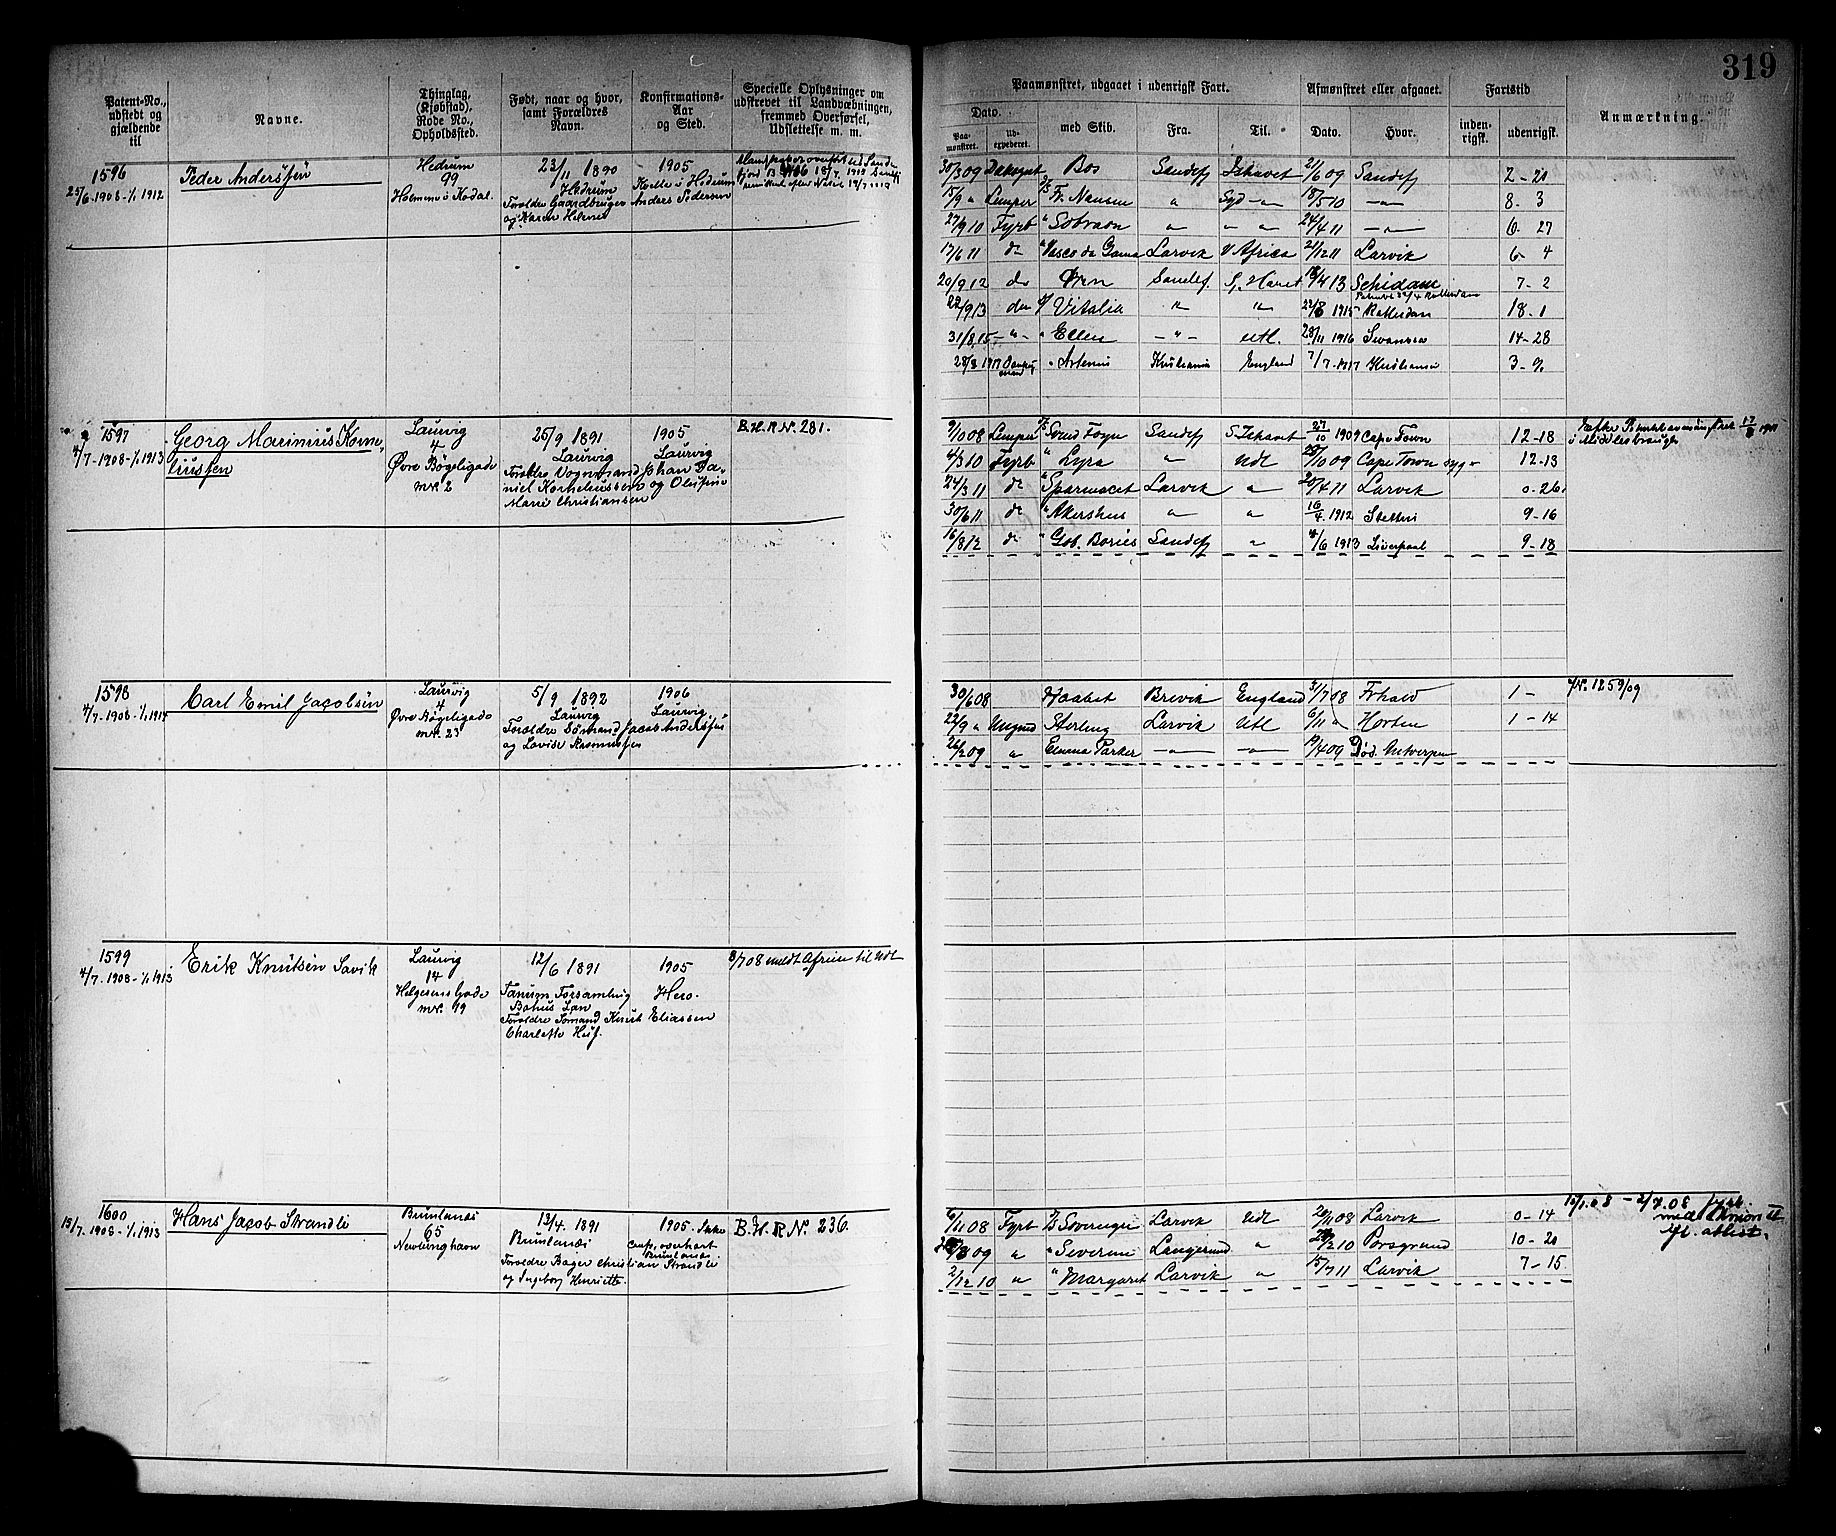 319
Patent-No., udstedt og gjældende til
Navne.
Thinglag, (Kjøbstad), Rode No., Opholdssted.
Født, naar og hvor, samt Forældres Navn.
Konfirmations-Aar og Sted.
Specielle Oplysninger om udskrevet til Landværbningen, fremmed Overførsel, Udslettelse m. m.
Paamønstret, udgaaet i udenrigsk Fart.
Dato.
Paa-mønstret.
ud-expederet.
med Skib.
Fra.
Til.
Afmønstret eller afgaaet.
Dato.
Hvor.
Fartstid
inden-rigsk.
udenrigsk.
Anmærkning.
1596
25/6 1908 - 1/1 1912
Peder Anderssen
Hedrum
99
Holmen i Kodal
23/11 1890
Hedrum
Foreldre Gaardbruger Anders Pedersen
og Karen Helene
1905
Kodal i Hedrum
30/3 09 Dæksgut Bos Sandefj Ishavet 21/6 09 Sandefj 2 - 20
15/9 " Lemper Fr. Nansen " Syd - " - 18/5 10 - " - 8 - 3
27/9 10 Fyrb " Sobraon " - " - 24/4 11 - " - 6 - 27
17/6 11 do " Vasco da Gama Larvik V Africa 21/12 11 Larvik 6 - 4
20/9 12 do Ørn Sandef. S. Havet /4 13 Schidam 7 - 2
22/9 13 do Vitalia " " 22/8 1915 Rotterdam 18 - 1
31/8 15 - " - " Ellen - " - utl. 28/11 1916 Swansea 14 - 28
28/3 1917 " Artemis Kristiania England 7/7 1917 Kristiania 3 - 9
1597
4/7 - 1908 - 1/1 1913
Georg Marinius Korne-
liussen
Laurvig
4
Øvre Bøgeligade
nr. 2
25/9 1891
Laurvig
Foreldre Vognmand Johan Da-
niel Korneliussen og Olufine
Marie Christiansen
1905
Laurvig
B. H. R. N. 281.
9/10 08 Lemper Svend Foyn Sandefj S. Ishavet 27/10 1909 Cape Town 12 - 18
4/3 10 Fyrb " Lyra " Udl 23/10 09 Cape Town syg 12 - 13
24/3 11 do " Sparmacet Larvik " 20/4 11 Larvik 0 - 26
30/6 11 do " Akershus " " 16/4 1912 Stettin 9 - 16
16/8 12 do " Gob. Bories Sandefj " 4/6 1913 Liverpool 9 - 18
i Middlesbrough
1598
4/7 - 1908 - 1/1 1914
Carl Emil Jacobsen
Laurvig
4
Øvre Bøgeligade
nr. 23
5/9 1892
Laurvig
Foreldre Sømand Jacob Anderssen
og Lovise Rasmussen
1906
Laurvig
30/6 08 Haabet Brevik England 31/7 08 Frhald 1 -
22/9 " Ungmd Sterling Larvik Utl 6/11 " Horten 1 - 14
26/2 09 " Emma Parker - " - - " - 19/4 09 Død. Antverpen
JN. 1259/09
1599
4/7 - 1908 - 1/1 1913
Erik Knutsen Savik
Laurvig
14
Helgesens Gade
nr. 19
12/6 1891
Tanum Forsamling
Bohus Län
Foreldre Sømand Knut Eliassen
Charlotte
1905
Hero.
8/7 08 meldt Afreise til Udl
1600
13/7 - 1908 - 1/1 1913
Hans Jacob Strandli
Brunlanes
65
Nevlunghavn
13/4. 1891
Brunlanes
Foreldre Bager Christian Strandli
og Ingeborg Henriette.
1905. Ikke
Brunlanes
B. H. R. N. 236.
6/11 08 Fyrb Sovereign Larvik Udl 20/11 08 Larvik 0 - 14
/8 09 " " Severin Langesund " /2 10 Porsgrund 10 - 20
2/12 10 " " Margaret Larvik " 15/7 11 Larvik 7 - 15.
- 2/7. 08
med Union II